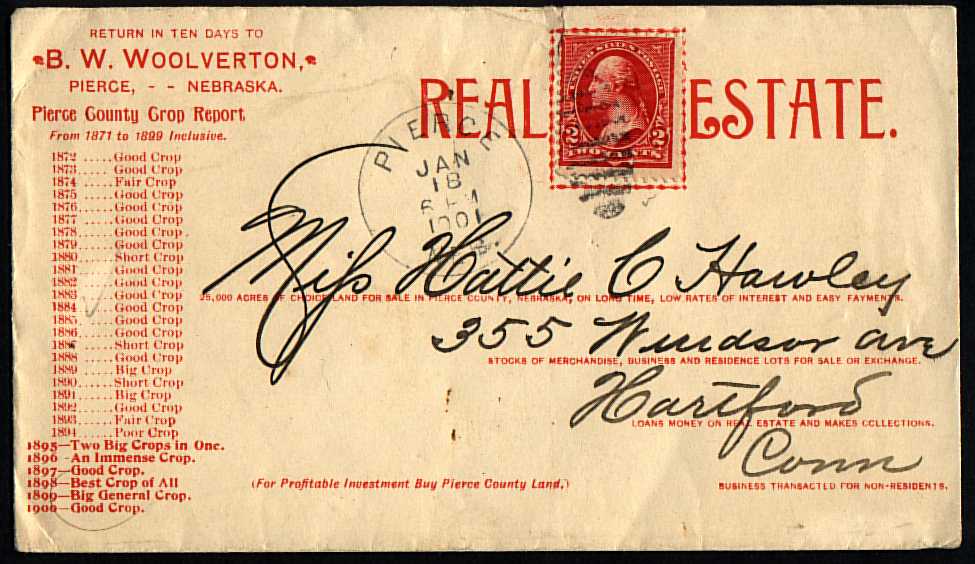 RETURN IN TEN DAYS TO
B. W. WOOLVERTON,
PIERCE, - - NEBRASKA.
Pierce County Crop Report
From 1871 to 1899 Inclusive.
1872 ..... Good Crop
1873 ..... Good Crop
1874 ..... Fair Crop
1875 ..... Good Crop
1876 ..... Good Crop
1877 ..... Good Crop
1878 ..... Good Crop
1879 ..... Good Crop
1880 ..... Short Crop
1881 ..... Good Crop
1882 ..... Good Crop
1883 ..... Good Crop
1884 ..... Good Crop
1885 ..... Good Crop
1886 ..... Good Crop
1887 ..... Short Crop
1888 ..... Good Crop
1889 ..... Big Crop
1890 ..... Short Crop
1891 ..... Big Crop
1892 ..... Good Crop
1893 ..... Fair Crop
1894 ..... Poor Crop
1895—Two Big Crops in One.
1896 -An Immense Crop.
1897—Good Crop.
1898—Best Crop of All
1899—Big General Crop.
1900—Good Crop.
REAL ESTATE.
UNITED STATES POSTAGE
2 2
TWO CENTS
PIERCE
JAN
18
6 PM
1901
NEB.
Miss Hattie C Hawley
25,000 ACRES OF CHOICE LAND FOR SALE IN PIERCE COUNTY, NEBRASKA, ON LONG TIME, LOW RATES OF INTEREST AND EASY PAYMENTS.
355 Windsor ave
STOCKS OF MERCHANDISE, BUSINESS AND RESIDENCE LOTS FOR SALE OR EXCHANGE.
Hartford
LOANS MONEY ON REAL ESTATE AND MAKES COLLECTIONS.
Conn
(For Profitable Investment Buy Pierce County Land.)
BUSINESS TRANSACTED FOR NON-RESIDENTS.